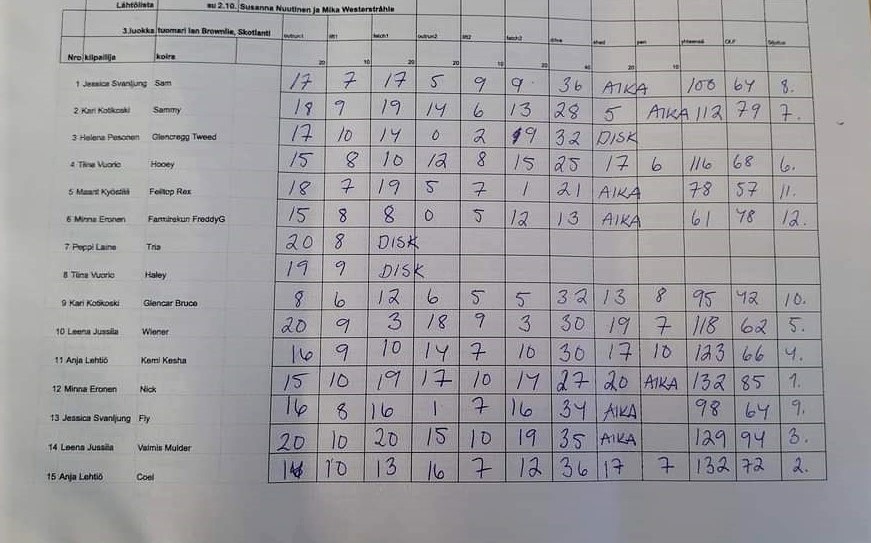 Lähtölista su 2.10. Susanna Nuutinen ja Mika Westerstråhle
3.luokka tuomari Ian Brownlie, Skotlanti outrun1 lift1 fetch1 outrun2 lift2 fetch2 drive shed pen yhteensä OLF Sijoitus
Nro kilpailija koira 20 10 20 20 10 20 40 20 10
1 Jessica Svanljung Sam 17 7 17 5 9 9 36 AIKA 100 64 8.
2 Kari Kotikoski Sammy 18 9 19 14 6 13 28 5 AIKA 112 79 7.
3 Helena Pesonen Glencregg Tweed 17 10 14 0 2 19 32 DISK
4 Tiina Vuorio Hooey 15 8 10 12 8 15 25 17 6 116 68 6.
5 Maarit Kyöstilä Felltop Rex 18 7 19 5 7 1 21 AIKA 78 57 11.
6 Minna Eronen Farmirekun FreddyG 15 8 8 0 5 12 13 AIKA 61 48 12.
7 Peppi Laine Tria 20 8 DISK
8 Tiina Vuorio Haley 19 9 DISK
9 Kari Kotikoski Glencar Bruce 8 6 12 6 5 5 32 13 8 95 42 10.
10 Leena Jussila Wiener 20 9 3 18 9 3 30 19 7 118 62 5.
11 Anja Lehtiö Kemi Kesha 16 9 10 14 7 10 30 17 10 123 66 4.
12 Minna Eronen Nick 15 10 19 17 10 14 27 20 AIKA 132 85 1.
13 Jessica Svanljung Fly 16 8 16 1 7 16 34 AIKA 98 64 9.
14 Leena Jussila Valmis Mulder 20 10 20 15 10 19 35 AIKA 129 94 3.
15 Anja Lehtiö Coel 14 10 13 16 7 12 36 17 7 132 72 2.